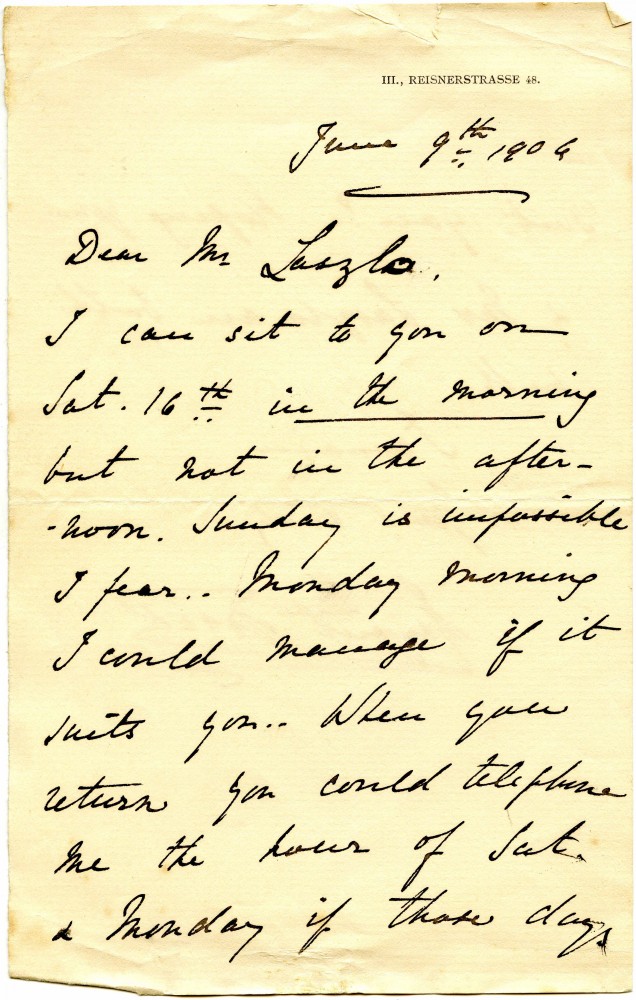 III., REISNERSTRASSE 48.
June 9th 1906
Dear Mr Laszlo,
I can sit to you on
Sat. 16th in the morning
but not in the after-
-noon. Sunday is impossible
I fear.. Monday morning
I could manage if it
suits you.. When you
return you could telephone
me the hour of Sat.
& Monday if those days